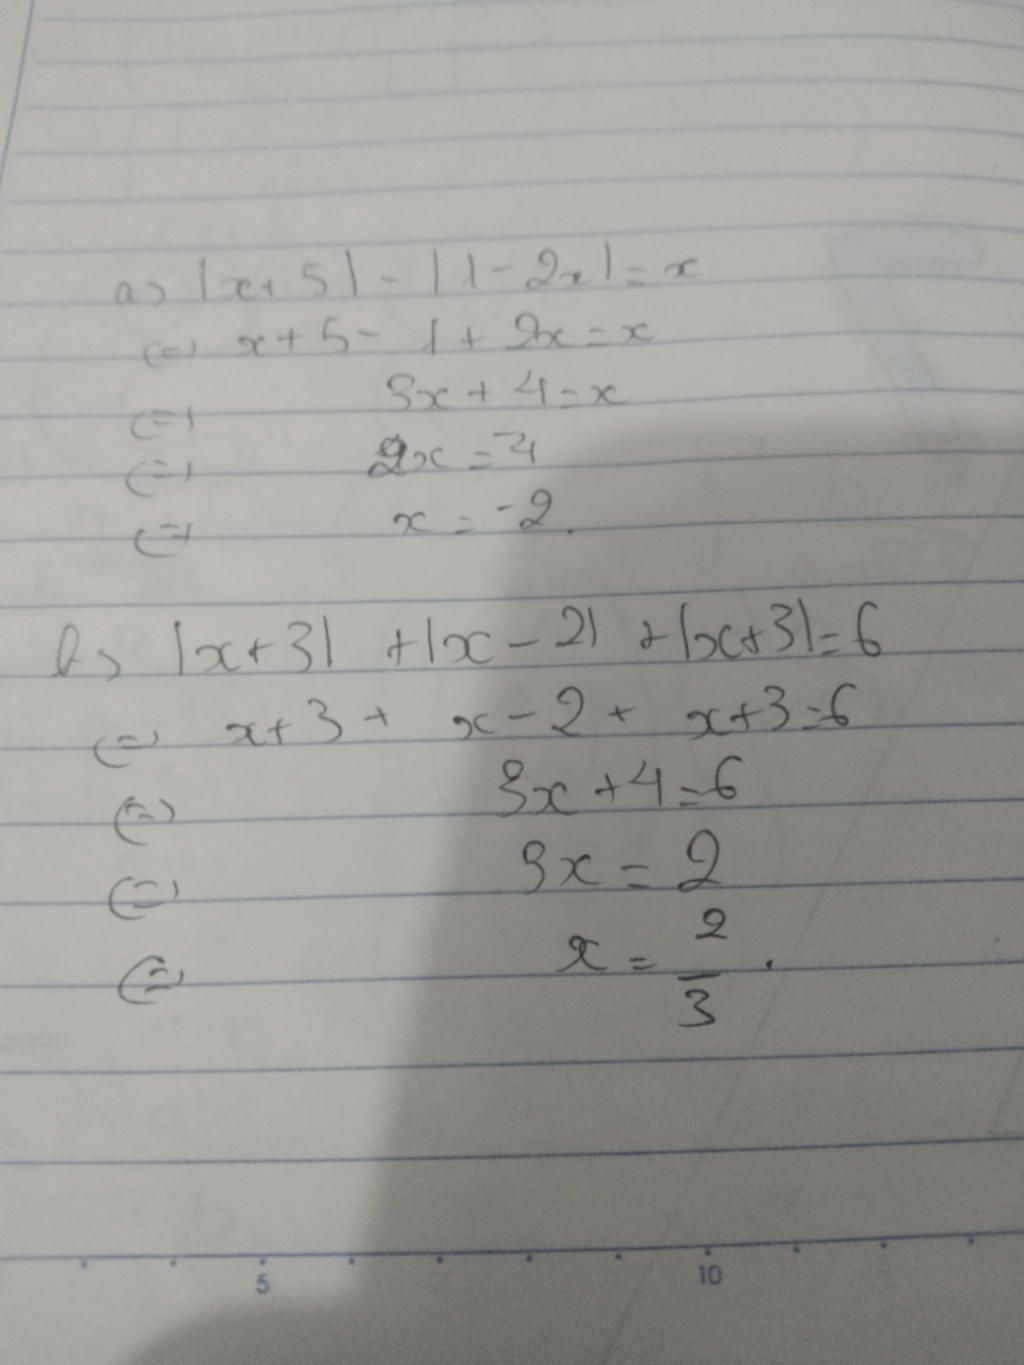 a) |x+5| - |1-2x| = x
(=) x+5- 1+2x=x
(=) 3x+4=x
(=) 2x=-4
(=) x=-2.
b) |x+3| +|x-2| +|x+3|=6
(=) x+3+ x-2+ x+3=6
(=) 3x+4=6
(=) 3x=2
(=) x=2/3.
5 10